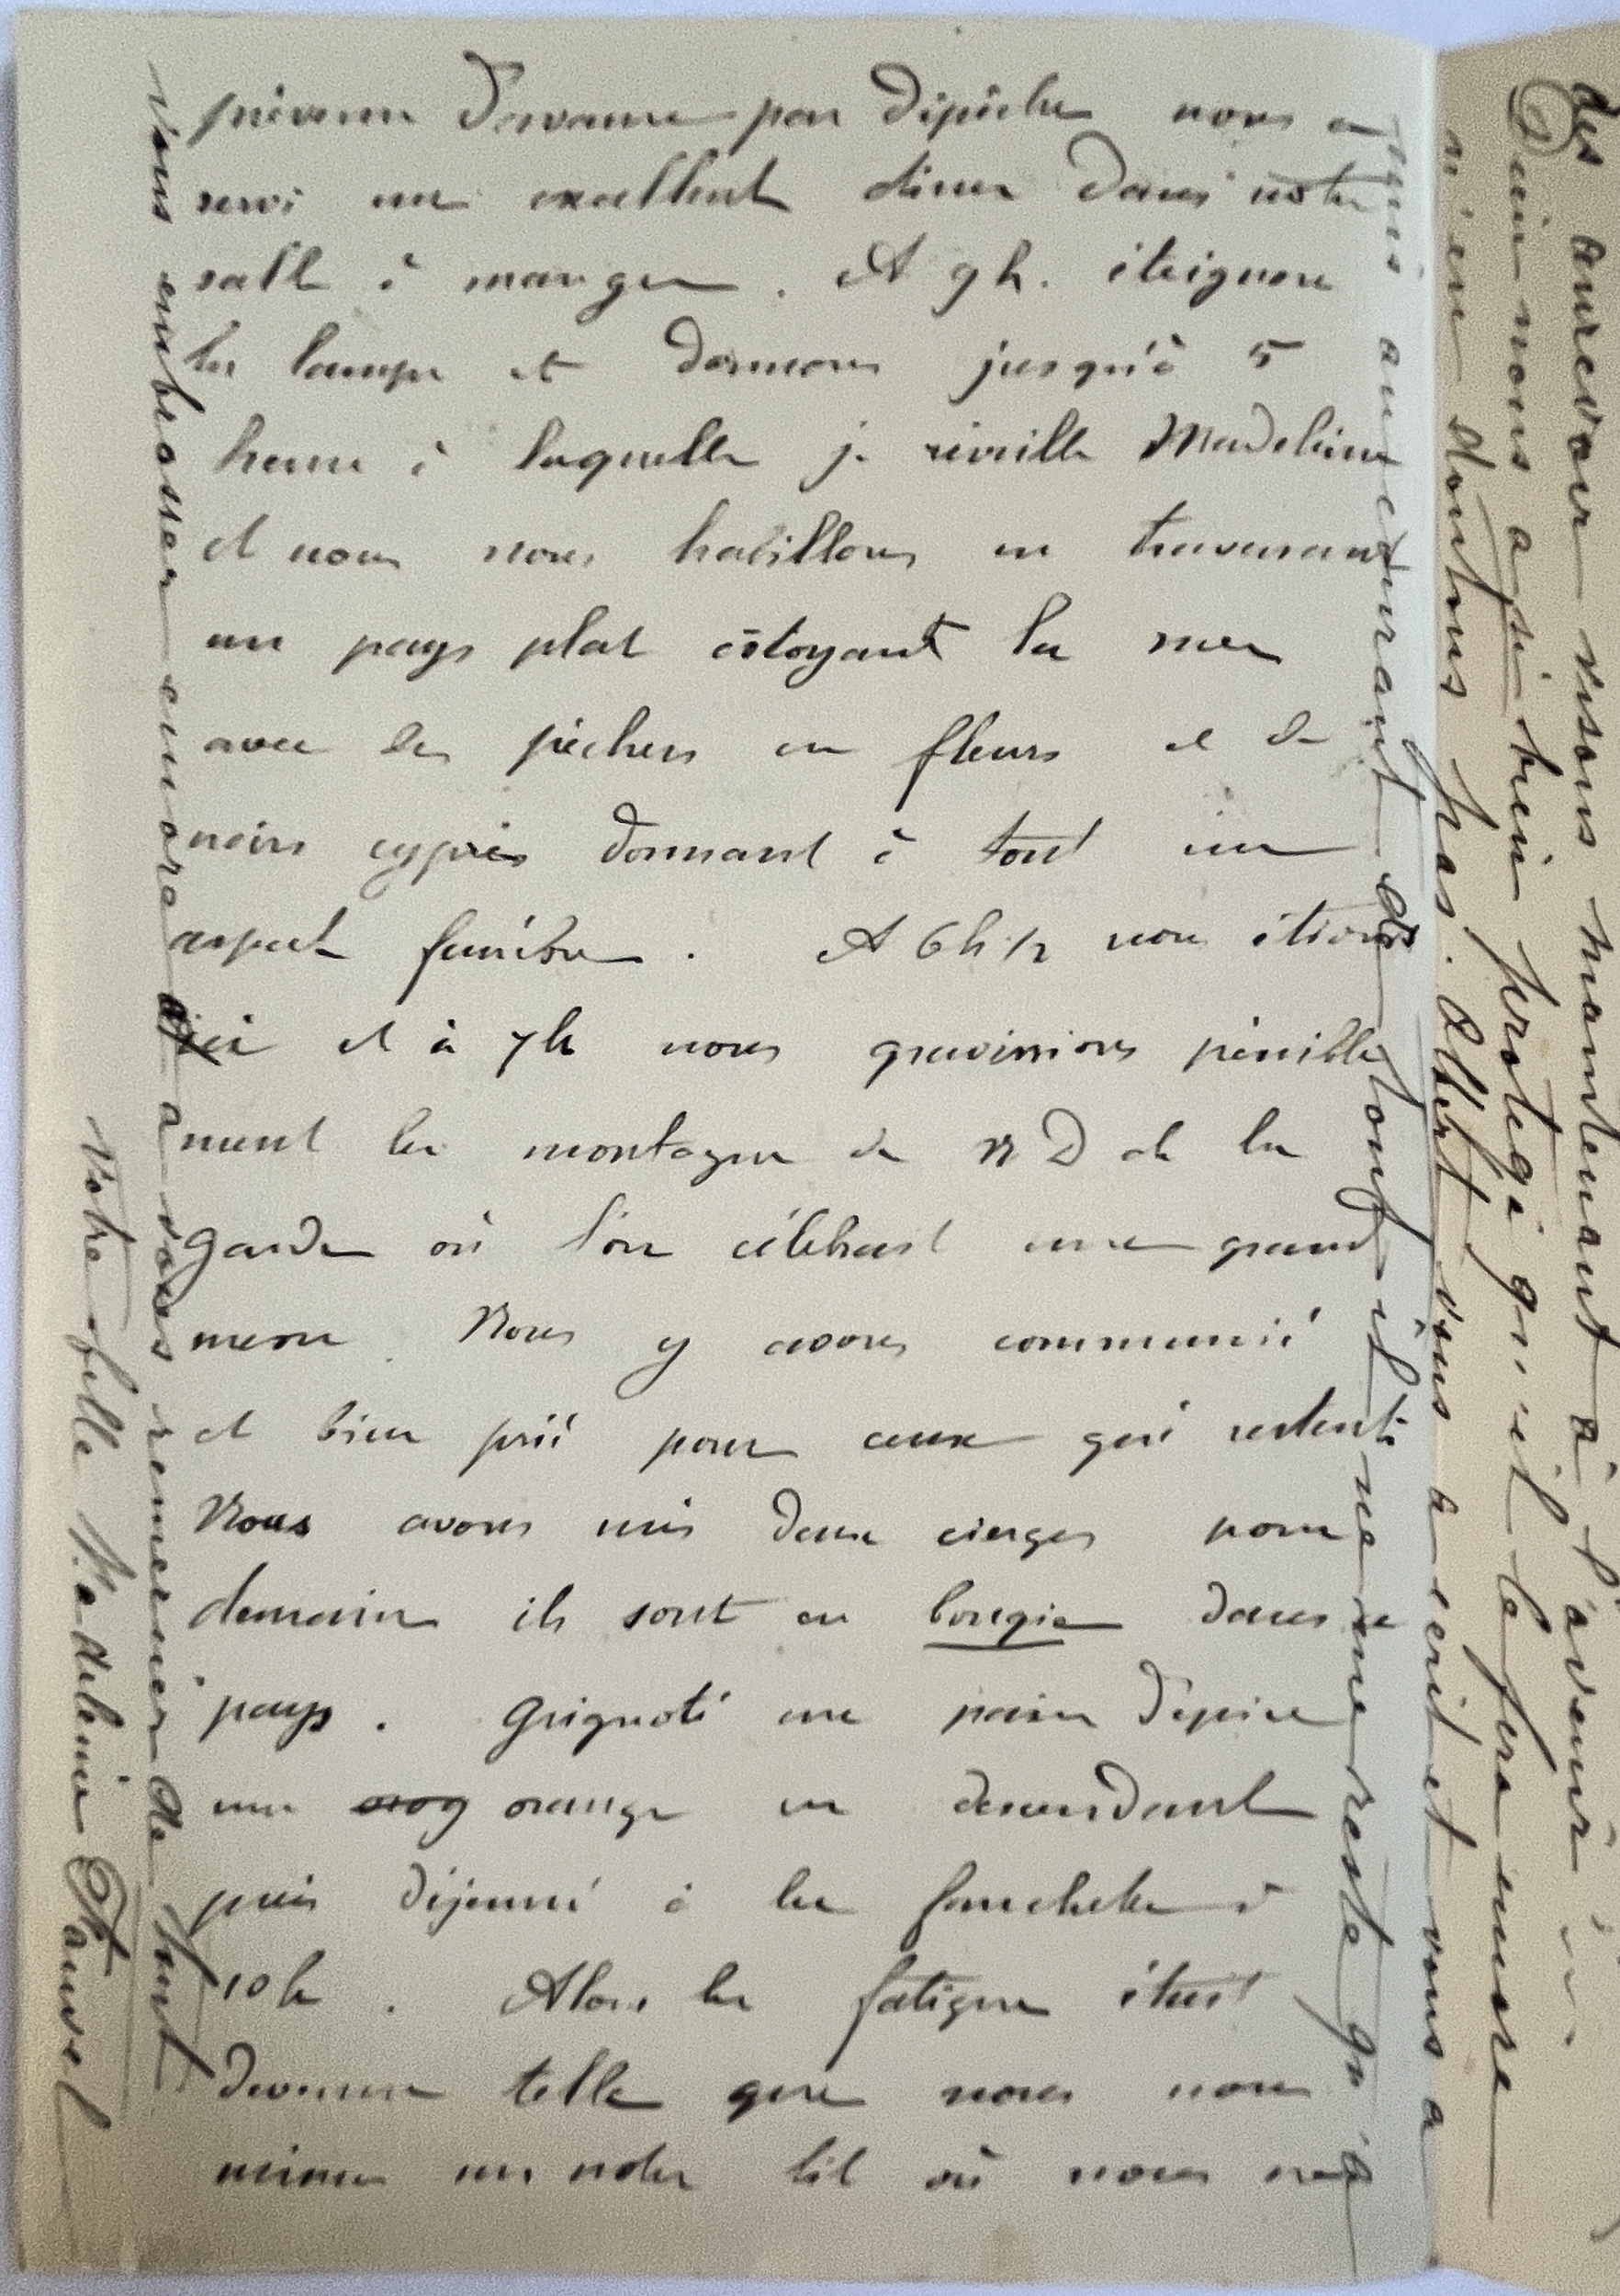 prévenu d'avance par dépêche nous a
servi un excellent diner dans notre
salle à manger. A 9h. éteignons
la lampe et dormons jusqu'à 5
heure à laquelle je réveille Madeleine
et nous nous habillons en traversant
un pays plat côtoyant la mer
avec des pêchers en fleurs et de
noirs cyprès donnant à tout un
aspect funèbre. A 6h 1/2 nous étions
ici et à 7h nous gravissions pénible
ment la montagne de N D de la
garde où l'on célébrait une grand
messe. Nous y avons communié
et bien prié pour ceux qui restent.
Nous avons mis deux cierges pour
demain ils sont en bougie dans ce
pays. Grignoté un pain d'épice
une orange en descendant
puis déjeuné à la fourchette à
10h. Alors la fatigue était
devenue telle que nous nous
mîmes en notre lit où nous
des aurevoir visons maintenant à l'avenir
Dieu nous a si bien protégé qu'il le fera encore
n'en doutons pas. Albert vous a écrit et vous a
mis au courant de tout il ne me reste qu'à
vous embrasser encore à vous remercier de tout
Votre fille Madeleine Fauvel